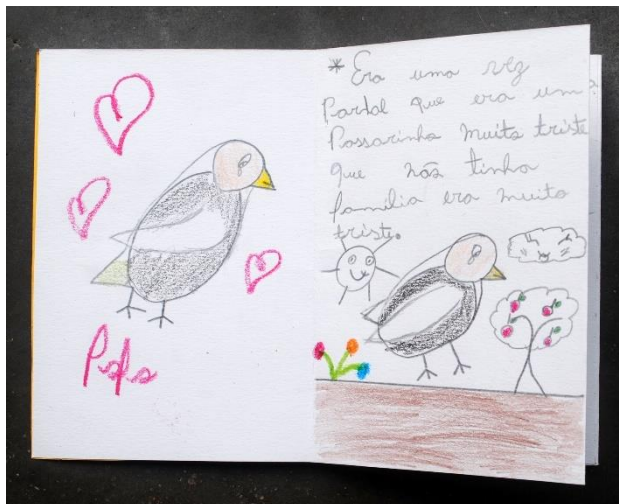 Pepe
* Era uma vez
Pardal que era um
Passarinho muito triste
que não tinha
família era muito
triste.